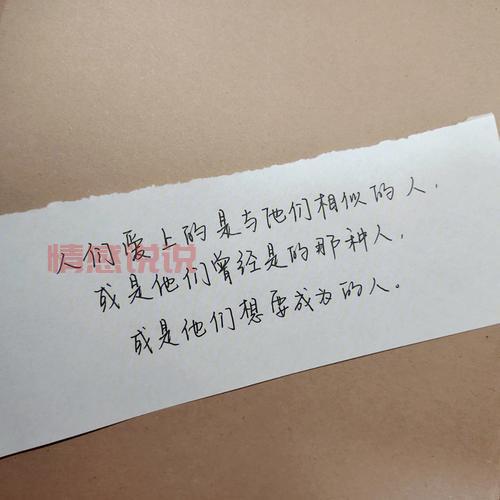 人们爱上的是与他们相似的人，
或是他们曾经是的那种人，
或是他们想要成为的人。
情感说说